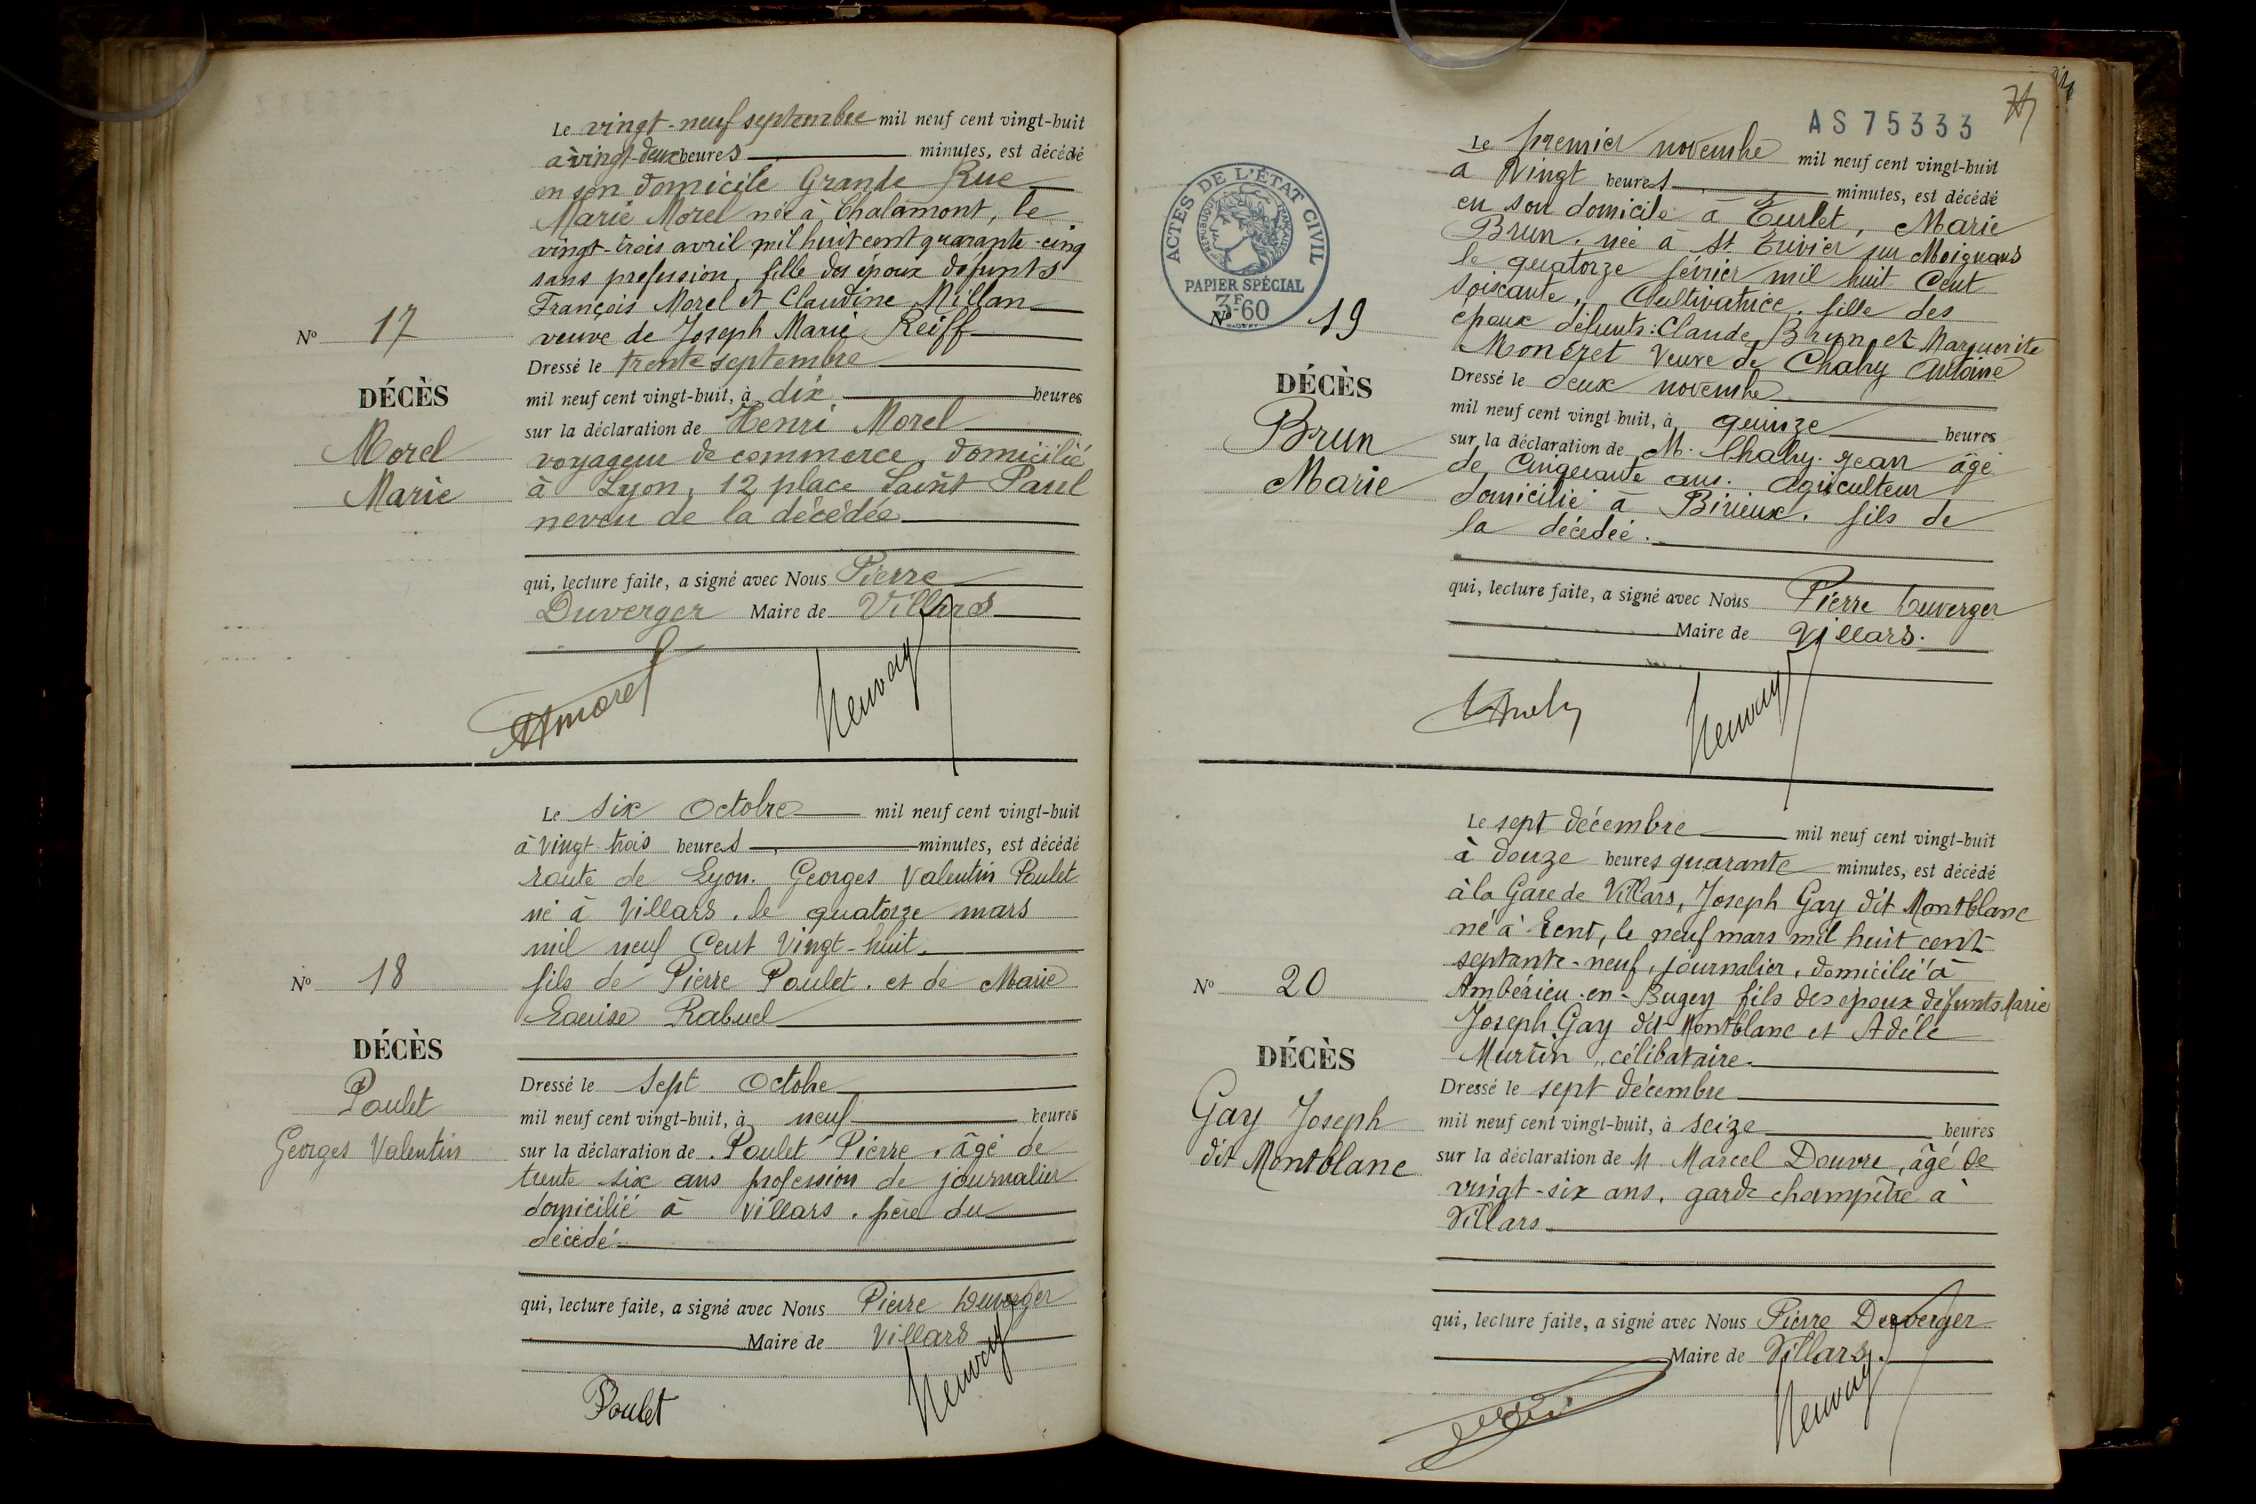 Le vingt-neuf septembre mil neuf cent vingt-huit
à vingt-deux heures minutes, est décédé
en son domicile Grande Rue
Marie Morel née à Chalamont, le
vingt-trois avril mil huit cent quarante-cinq
sans profession, fille des époux défunts
François Morel et Claudine Millan
veuve de Joseph Marie Reiff
Dressé le trente septembre
mil neuf cent vingt-huit, à dix heures
sur la déclaration de Henri Morel
voyageur de commerce, domicilié
à Lyon, 12 place Saint Paul
neveu de la décédée
qui, lecture faite, a signé avec Nous Pierre
Duverger Maire de Villars
Nº 17
DÉCÈS
Morel
Marie
HMorel
Le six Octobre mil neuf cent vingt-huit
à Vingt trois heures minutes, est décédé
route de Lyon. Georges Valentin Poulet
né à Villars. le quatorze mars
mil neuf Cent Vingt-huit.
fils de Pierre Poulet. et de Marie
Louise Rabuel
Nº 18
DÉCÈS
Poulet
Georges Valentin
Dressé le Sept Octobre
mil neuf cent vingt-huit, à neuf heures
sur la déclaration de Poulet Pierre, âgé de
trente six ans profession de journalier
domicilié à Villars. père du
décédé
qui, lecture faite, a signé avec Nous Pierre Duverger
Maire de Villars
Poulet
AS 75333
ACTES DE L'ÉTAT CIVIL
RÉPUBLIQUE FRANÇAISE
PAPIER SPÉCIAL
3F60
Le premier novembre mil neuf cent vingt-huit
à Vingt heures minutes, est décédé
en son domicile à Turlet, Marie
Brun. née à St Trivier sur Moignans
le quatorze février mil huit Cent
soixante, Cultivatrice. fille des
époux défunts: Claude Brun et Marguerite
Monézet Veuve de Chahy Antoine
Dressé le deux novembre
mil neuf cent vingt-huit, à quinze heures
sur la déclaration de M. Chahy. Jean âgé
de Cinquante ans. agriculteur
domicilié à Birieux. fils de
la décédée.
qui, lecture faite, a signé avec Nous Pierre Duverger
Maire de Villars.
Nº 19
DÉCÈS
Brun
Marie
Le sept décembre mil neuf cent vingt-huit
à douze heures quarante minutes, est décédé
à la Gare de Villars, Joseph Gay dit Montblanc
né à Lent, le neuf mars mil huit cent
septante-neuf, journalier, domicilié à
Ambérieu-en-Bugey fils des époux défunts Marie
Joseph Gay dit-Montblanc et Adèle
Murtin, célibataire.
Nº 20
DÉCÈS
Gay Joseph
dit Montblanc
Dressé le sept décembre
mil neuf cent vingt-huit, à seize heures
sur la déclaration de M Marcel Douvre, âgé de
vingt-six ans, garde champêtre à
Villars.
qui, lecture faite, a signé avec Nous Pierre Duverger
Maire de Villars.